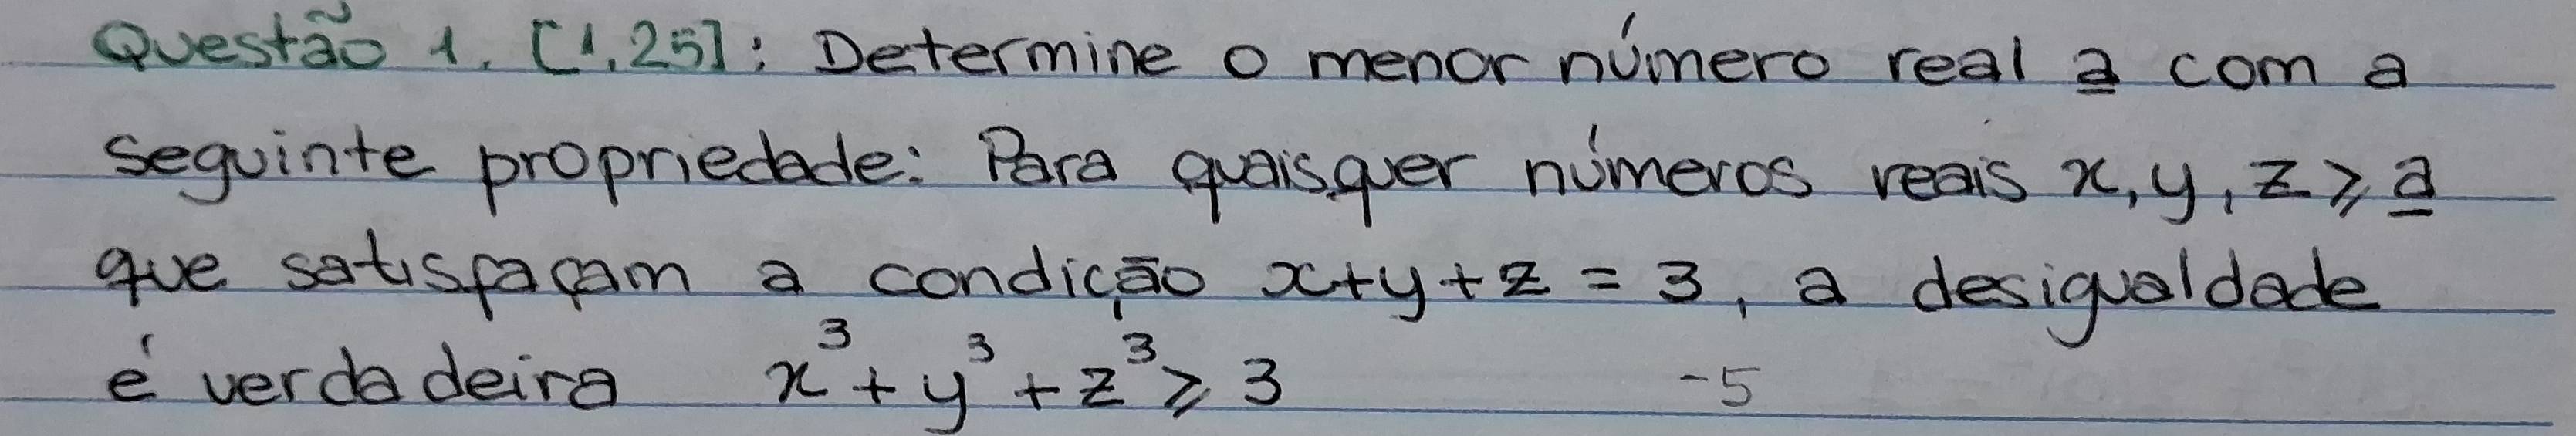 Questão 1. [1,25]: Determine o menor número real a com a
seguinte propriedade: Para quaisquer números reais x, y, z ⩾ a
que satisfaçam a condição x+y+z = 3, a desigualdade
é verdadeira x³ + y³ + z³ ⩾ 3 -5